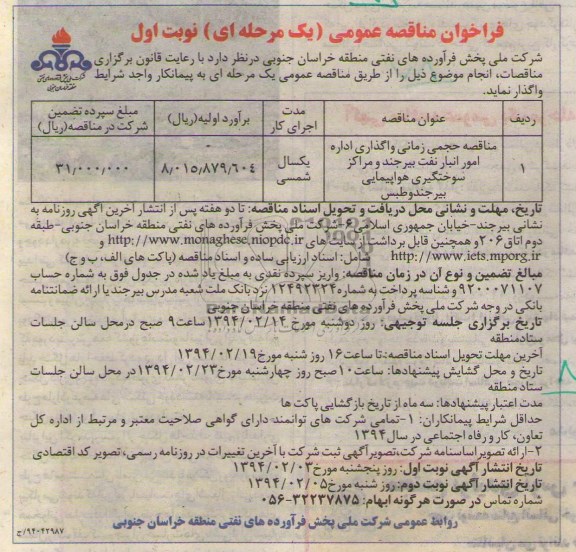 فراخوان مناقصه عمومی (یک مرحله ای) نوبت اول
شرکت ملی پخش فرآورده های نفتی منطقه خراسان جنوبی درنظر دارد با رعایت قانون برگزاری
مناقصات، انجام موضوع ذیل را از طریق مناقصه عمومی یک مرحله ای به پیمانکار واجد شرایط
واگذار نماید.
ردیف عنوان مناقصه مدت اجرای کار برآورد اولیه(ریال) مبلغ سپرده تضمین شرکت در مناقصه(ریال)
۱ مناقصه حجمی زمانی واگذاری اداره امور انبار نفت بیرجند و مراکز سوختگیری هواپیمایی بیرجندوطبس یکسال شمسی ۸٫۰۱۵٫۸۷۹٫۶۰٤ ۳۱٫۰۰۰٫۰۰۰
تاریخ، مهلت و نشانی محل دریافت و تحویل اسناد مناقصه: تا دو هفته پس از انتشار آخرین آگهی روزنامه به
نشانی بیرجند-خیابان جمهوری اسلامی-شرکت ملی پخش فرآورده های نفتی منطقه خراسان جنوبی-طبقه
دوم اتاق۲۰۶ و همچنین قابل برداشت از سایت های http://www.monaghese.niopdc.ir و
http://www.iets.mporg.ir شامل: اسناد ارزیابی ساده و اسناد مناقصه (پاکت های الف، ب و ج)
مبالغ تضمین و نوع ان در زمان مناقصه: واریز سپرده نقدی به مبلغ یاد شده در جدول فوق به شماره حساب
۹۲۰۰۰۷۱۱۰۷ و شناسه پرداخت به شماره۱۲۴۹۲۳۲۴ نزد بانک ملت شعبه مدرس بیرجند یا ارائه ضمانتنامه
بانکی در وجه شرکت ملی پخش فرآورده های نفتی منطقه خراسان جنوبی
تاریخ برگزاری جلسه توجیهی: روز دوشنبه مورخ ۱۳۹۴/۰۲/۱۴ ساعت۹ صبح درمحل سالن جلسات
ستادمنطقه
آخرین مهلت تحویل اسناد مناقصه: تا ساعت ۱۶ روز شنبه مورخ۱۳۹۴/۰۲/۱۹
تاریخ و محل گشایش پیشنهادها: ساعت۱۰صبح روز چهارشنبه مورخ۱۳۹۴/۰۲/۲۳در محل سالن جلسات
ستاد منطقه
مدت اعتبار پیشنهادها: سه ماه از تاریخ بازگشایی پاکت ها
حداقل شرایط پیمانکاران: ۱-تمامی شرکت های توانمند دارای گواهی صلاحیت معتبر و مرتبط از اداره کل
تعاون، کار و رفاه اجتماعی در سال ۱۳۹۴
۲-ارائه تصویراساسنامه شرکت،تصویرآگهی ثبت شرکت با آخرین تغییرات در روزنامه رسمی، تصویر کد اقتصادی
تاریخ انتشار آگهی نوبت اول: روز پنجشنبه مورخ۱۳۹۴/۰۲/۰۳
تاریخ انتشار آگهی نوبت دوم: روز شنبه مورخ ۱۳۹۴/۰۲/۰۵
شماره تماس در صورت هرگونه ابهام: ۳۲۲۳۷۸۷۵-۰۵۶
روابط عمومی شرکت ملی پخش فرآورده های نفتی منطقه خراسان جنوبی
۹۴-۴۲۹۸۷/ج